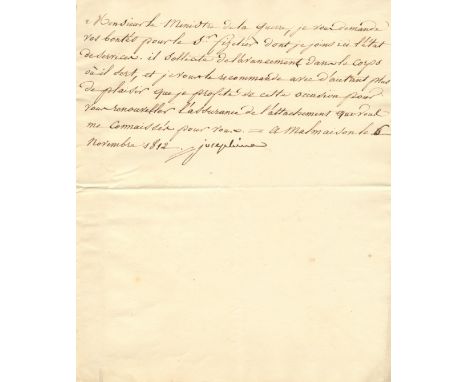 Monsieur le Ministre de la guerre, je vous demande
vos bontés pour le Sr. dont je joins ici l'état
de services. il sollicite de l'avancement dans le corps
où il sert, et je vous le recommande avec d'autant plus
de plaisir que je profite de cette occasion pour
vous renouveller l'assurance de l'attachement que vous
me connaissez pour vous. = a Malmaison le 6
Novembre 1812. josephine